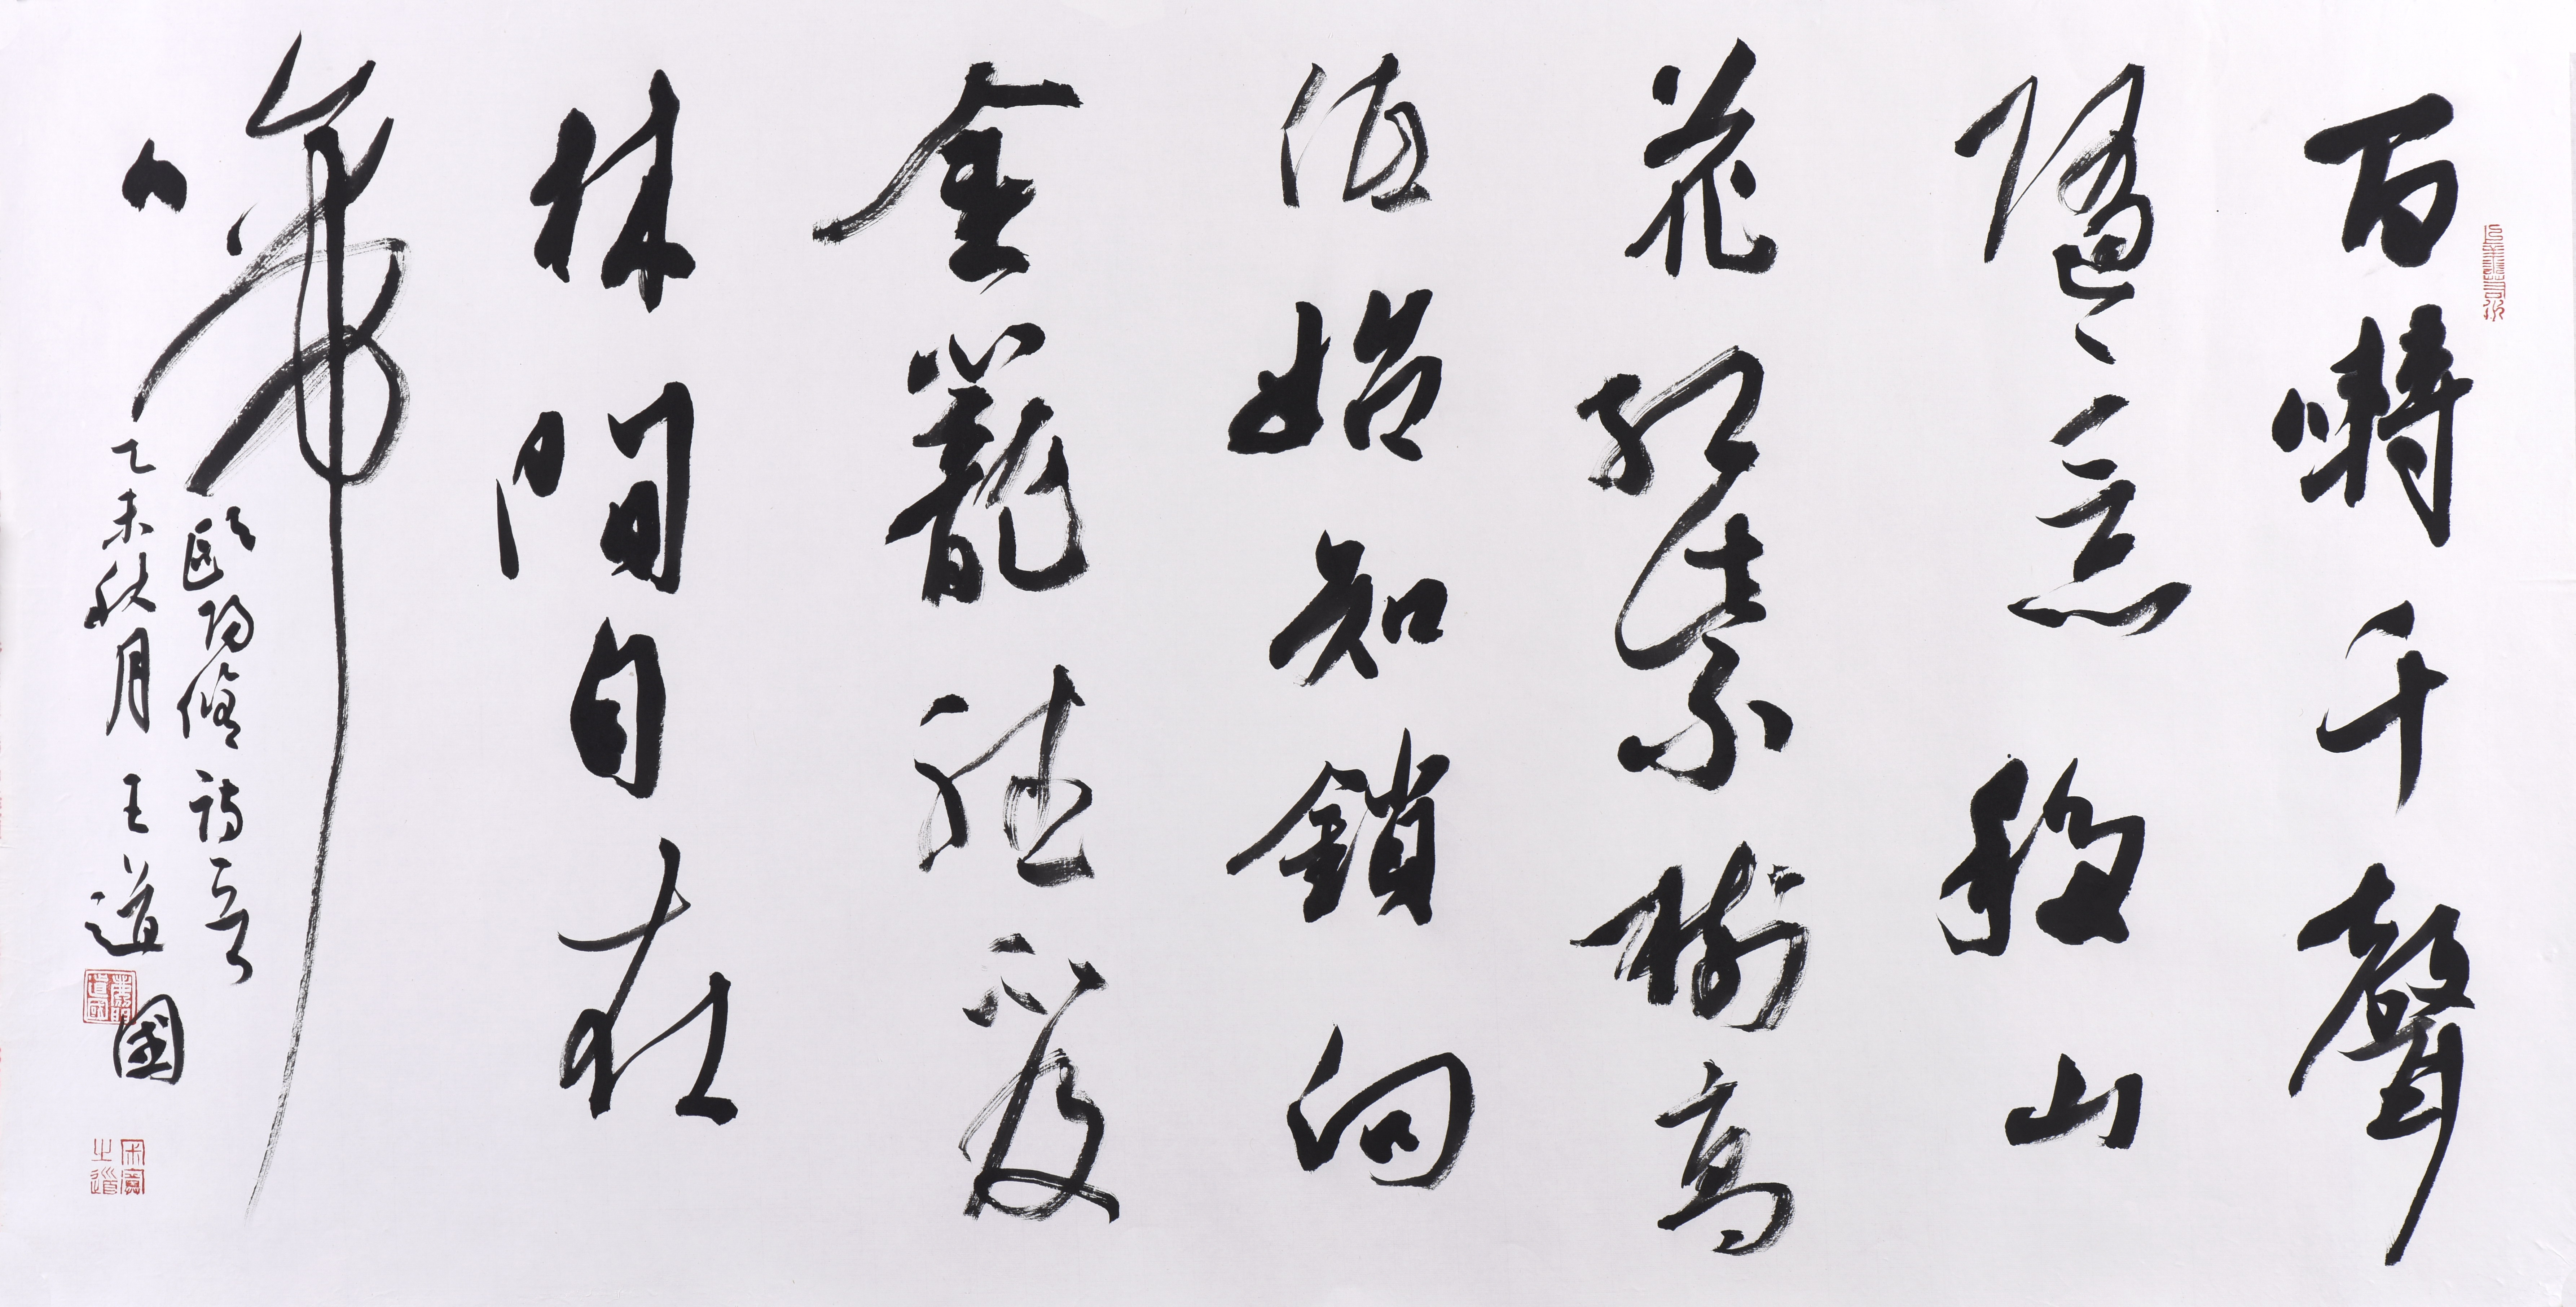 百囀千聲
隨意移山
花紅紫樹高
低始知鎖向
金籠聽不及
林間自在
啼
歐陽脩詩一首
乙未秋月 王道國